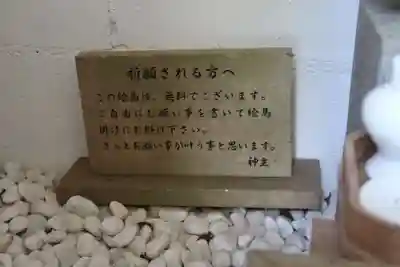 祈願される方へ
この絵馬は、無料でございます。
ご自由にお願い事を書いて絵馬
掛けにお掛け下さい。
きっとお願い事が叶う事と思います。
神主